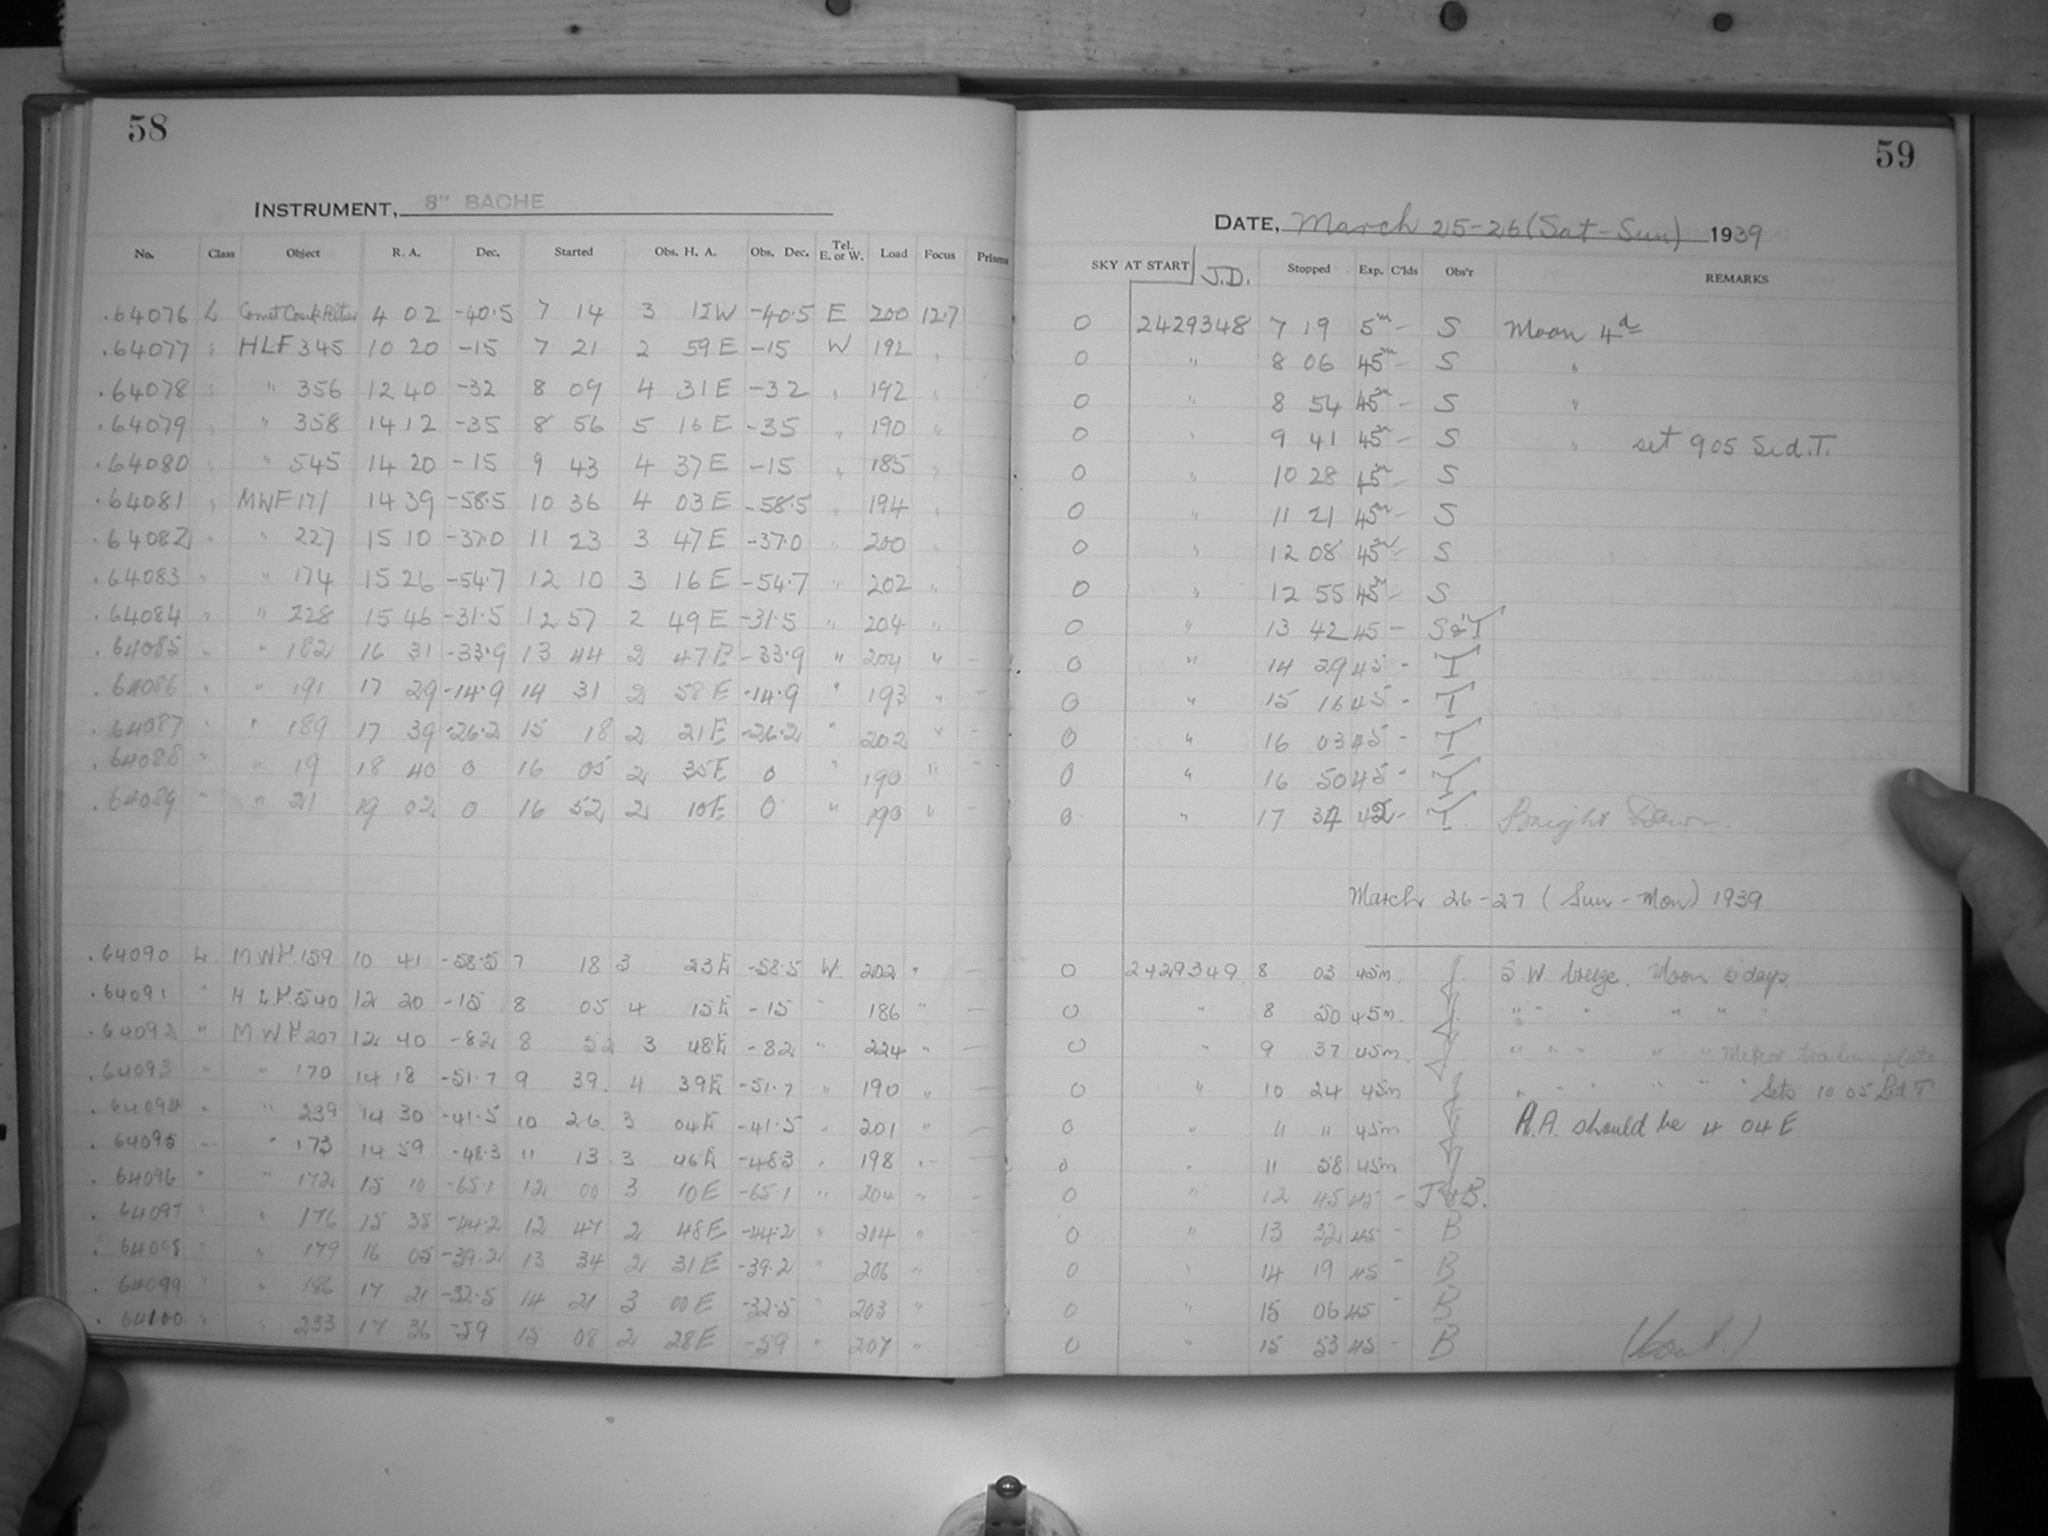 58
INSTRUMENT, 8" BACHE
No. Class Object R. A. Dec. Started Obs. H. A. Obs. Dec. Tel. E. or W. Load Focus Prisms
.64076 L Comet 4 02 -40.5 7 14 3 12W -40.5 E 200 12.7
.64077 " HLF 345 10 20 -15 7 21 2 59E -15 W 192 "
.64078 " " 356 12 40 -32 8 09 4 31E -32 " 192 "
.64079 " " 358 14 12 -35 8 56 5 16E -35 " 190 "
.64080 " " 545 14 20 -15 9 43 4 37E -15 " 185 "
.64081 " MWF 171 14 39 -58.5 10 36 4 03E -58.5 " 194 "
.64082 " " 227 15 10 -37.0 11 23 3 47E -37.0 " 200 "
.64083 " " 174 15 26 -54.7 12 10 3 16E -54.7 " 202 "
.64084 " " 228 15 46 -31.5 12 57 2 49E -31.5 " 204 "
.64085 " " 182 16 31 -33.9 13 44 2 47E -33.9 " 204 " -
.64086 " " 191 17 29 -14.9 14 31 2 58E -14.9 " 193 " -
.64087 " " 189 17 39 -26.2 15 18 2 21E -26.2 " 202 " -
.64088 " " 19 18 40 0 16 05 2 35E 0 " 190 " -
.64089 " " 21 19 02 0 16 52 2 10E 0 " 190 " -
.64090 L MWF 159 10 41 -58.5 7 18 3 23E -58.5 W. 202 " -
.64091 " HLF 540 12 20 -15 8 05 4 15E -15 " 186 " -
.64092 " MWF 207 12 40 -82 8 52 3 48E -82 " 224 " -
.64093 " " 170 14 18 -51.7 9 39. 4 39E -51.7 " 190 " -
.64094 " " 239 14 30 -41.5 10 26. 3 04E -41.5 " 201 " -
.64095 " " 173 14 59 -48.3 11 13. 3 46E -48.3 " 198 " -
.64096 " " 172 15 10 -65.1 12 00 3 10E -65.1 " 204 " -
.64097 " " 176 15 35 -44.2 12 47 2 48E -44.2 " 214 " -
.64098 " " 179 16 05 -39.2 13 34 2 31E -39.2 " 206 " -
.64099 " " 186 17 21 -32.5 14 21 3 00E -32.5 " 203 " -
.64100 " " 233 17 36 -59 15 08 2 28E -59 " 207 "
59
DATE, March 25-26 (Sat-Sun) 1939
SKY AT START J.D. Stopped Exp. C'lds Obs'r REMARKS
0 2429348 7 19 5m - S Moon 4d
0 " 8 06 45m - S "
0 " 8 54 45m - S "
0 " 9 41 45m - S " set 9 05 Sid.T.
0 " 10 28 45m - S
0 " 11 21 45m - S
0 " 12 08 45m - S
0 " 12 55 45m - S
0 " 13 42 45 - S&T
0 " 14 29 45 - T
0 " 15 16 45 - T
0 " 16 03 45 - T
0 " 16 50 45 - T
0 " 17 34 42 - T. Bright Dawn.
March 26-27 (Sun-Mon) 1939
0 2429349 8 03 45m. J. S.W. breeze. Moon 5 days.
0 " 8 50 45m. J. " " " " " "
0 " 9 37 45m. J. " " " " " Meteor trail on plate
0 " 10 24 45m J " " " " " " Sets 10 05 Sid T
0 " 11 11 45m J H.A. should be 4 04 E
0 " 11 58 45m J
0 " 12 45 45 - J & B.
0 " 13 32 45 - B
0 " 14 19 45 - B
0 " 15 06 45 - B
0 " 15 53 45 - B (Cont.)